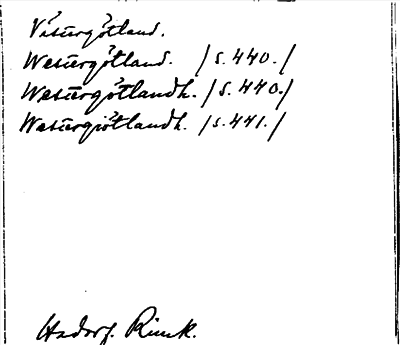 Västergötland.
Westergötland. /s. 440./
Westergötlandh. /s. 440./
Westergiötlandh. /s. 441./
Hadorf. Rimk.